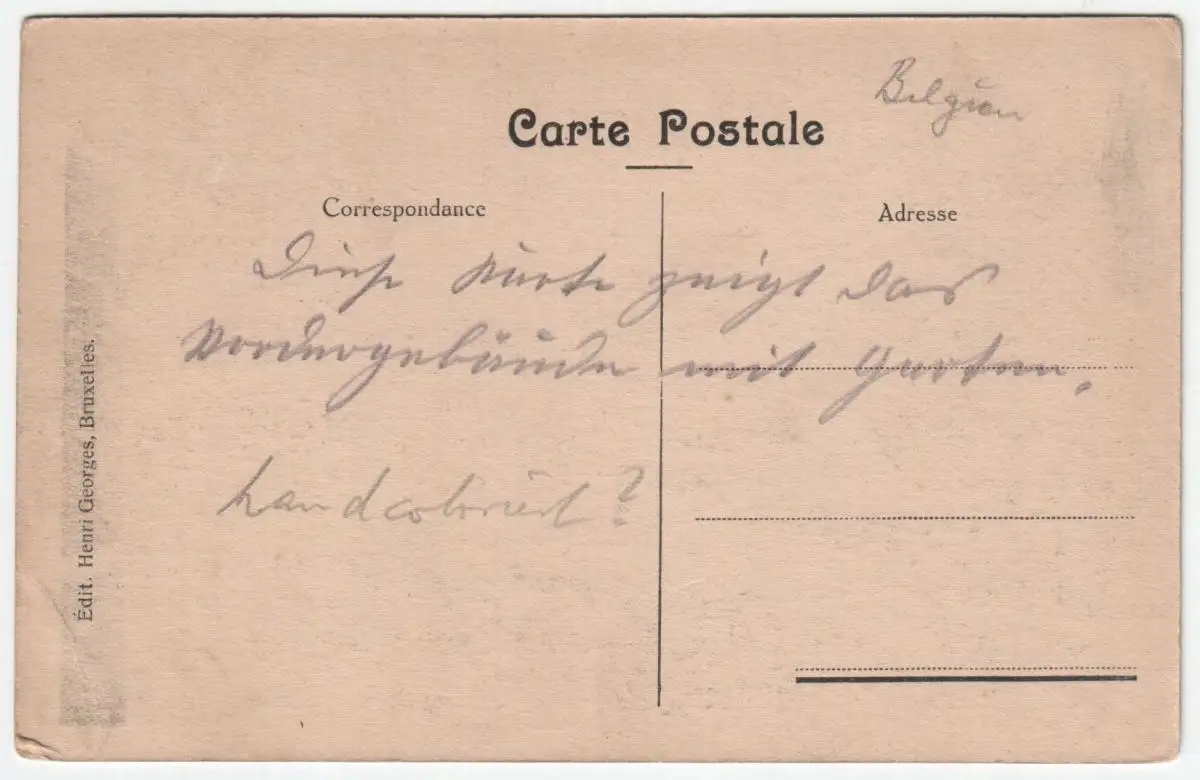 Belgien
Carte Postale
Correspondance
Adresse
Diese Karte zeigt das
Vordergebäude mit Garten.
handcoloriert?
Édit. Henri Georges, Bruxelles.